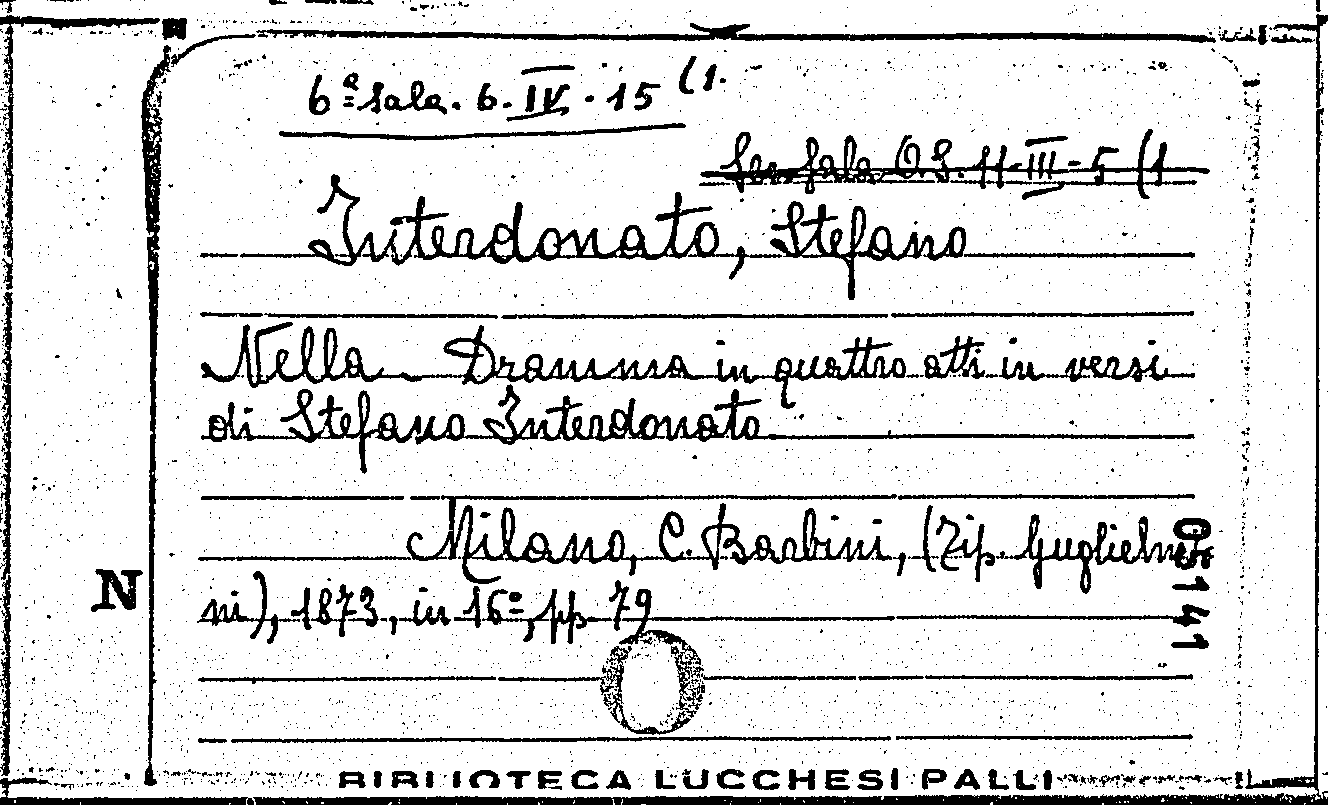 6ª Sala. 6. IV. 15 (1.
Sala O.S. 11-III-5 (1
Interdonato, Stefano
Nella - Dramma in quattro atti in versi
di Stefano Interdonato
Milano, C. Barbini, (Tip. Guglielmi
ni), 1873, in 16º, pp 79
N
05141
BIBLIOTECA LUCCHESI PALLI